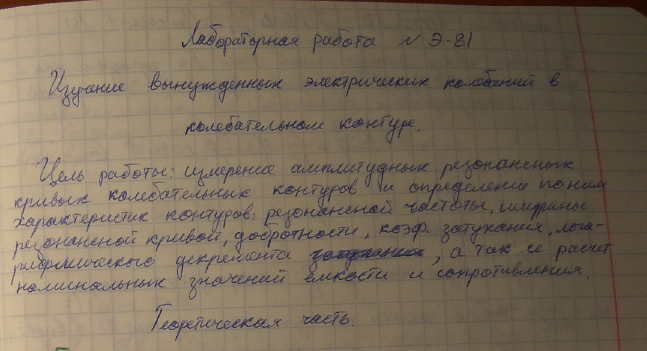 Лабораторная работа № Э-81
Изучение вынужденных электрических колебаний в
колебательном контуре.
Цель работы: измерение амплитудных резонансных
кривых колебательных контуров и определение по ним
характеристик контуров: резонансной частоты, ширины
резонансной кривой, добротности, коэф. затухания, лога-
рифмического декремента, а так же расчёт
номинальных значений ёмкости и сопротивления.
Теоретическая часть.